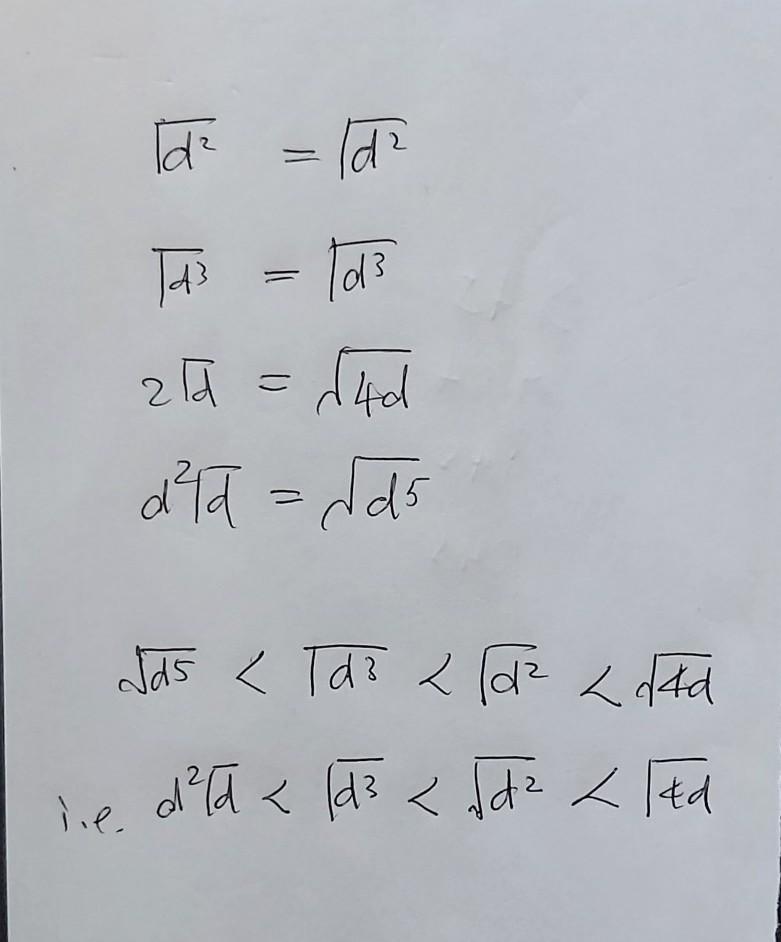 √d² = √d²
√d³ = √d³
2√d = √4d
d²√d = √d5
√d5 < √d³ < √d² < √4d
i.e. d²√d < √d³ < √d² < √4d